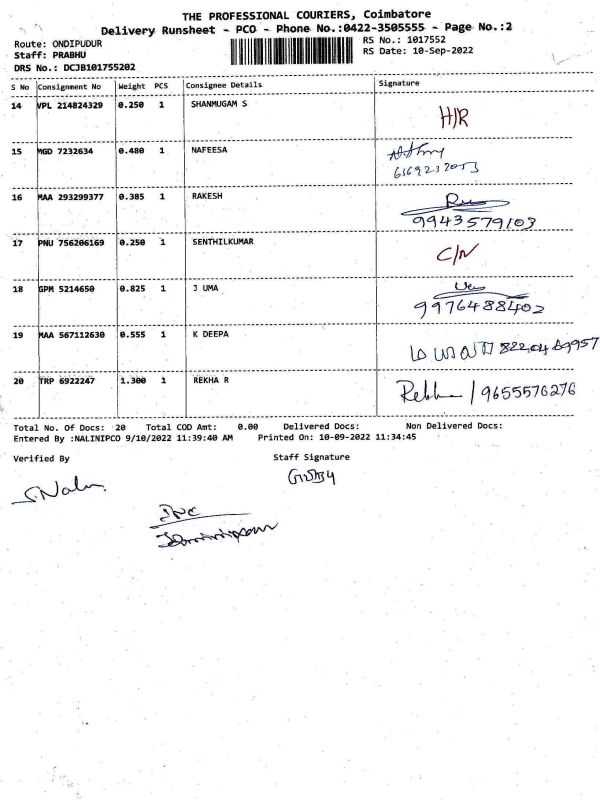 THE PROFESSIONAL COURIERS, Coimbatore
Delivery Runsheet - PCO - Phone No.:0422-3505555 - Page No.:2
Route: ONDIPUDUR RS No.: 1017552
Staff: PRABHU RS Date: 10-Sep-2022
DRS No.: DCJB101755202
S No Consignment No Weight PCS Consignee Details Signature
14 VPL 214824329 0.250 1 SHANMUGAM S H/R
15 MGD 7232634 0.480 1 NAFEESA
16 MAA 293299377 0.385 1 RAKESH
9943579103
17 PNU 756206169 0.250 1 SENTHILKUMAR C/N
18 GPM 5214650 0.825 1 J UMA
9976488402
19 MAA 567112630 0.555 1 K DEEPA
20 TRP 6922247 1.300 1 REKHA R Rekha / 9655576276
Total No. Of Docs: 20 Total COD Amt: 0.00 Delivered Docs: Non Delivered Docs:
Entered By :NALINIPCO 9/10/2022 11:39:40 AM Printed On: 10-09-2022 11:34:45
Verified By Staff Signature
S.Nalini